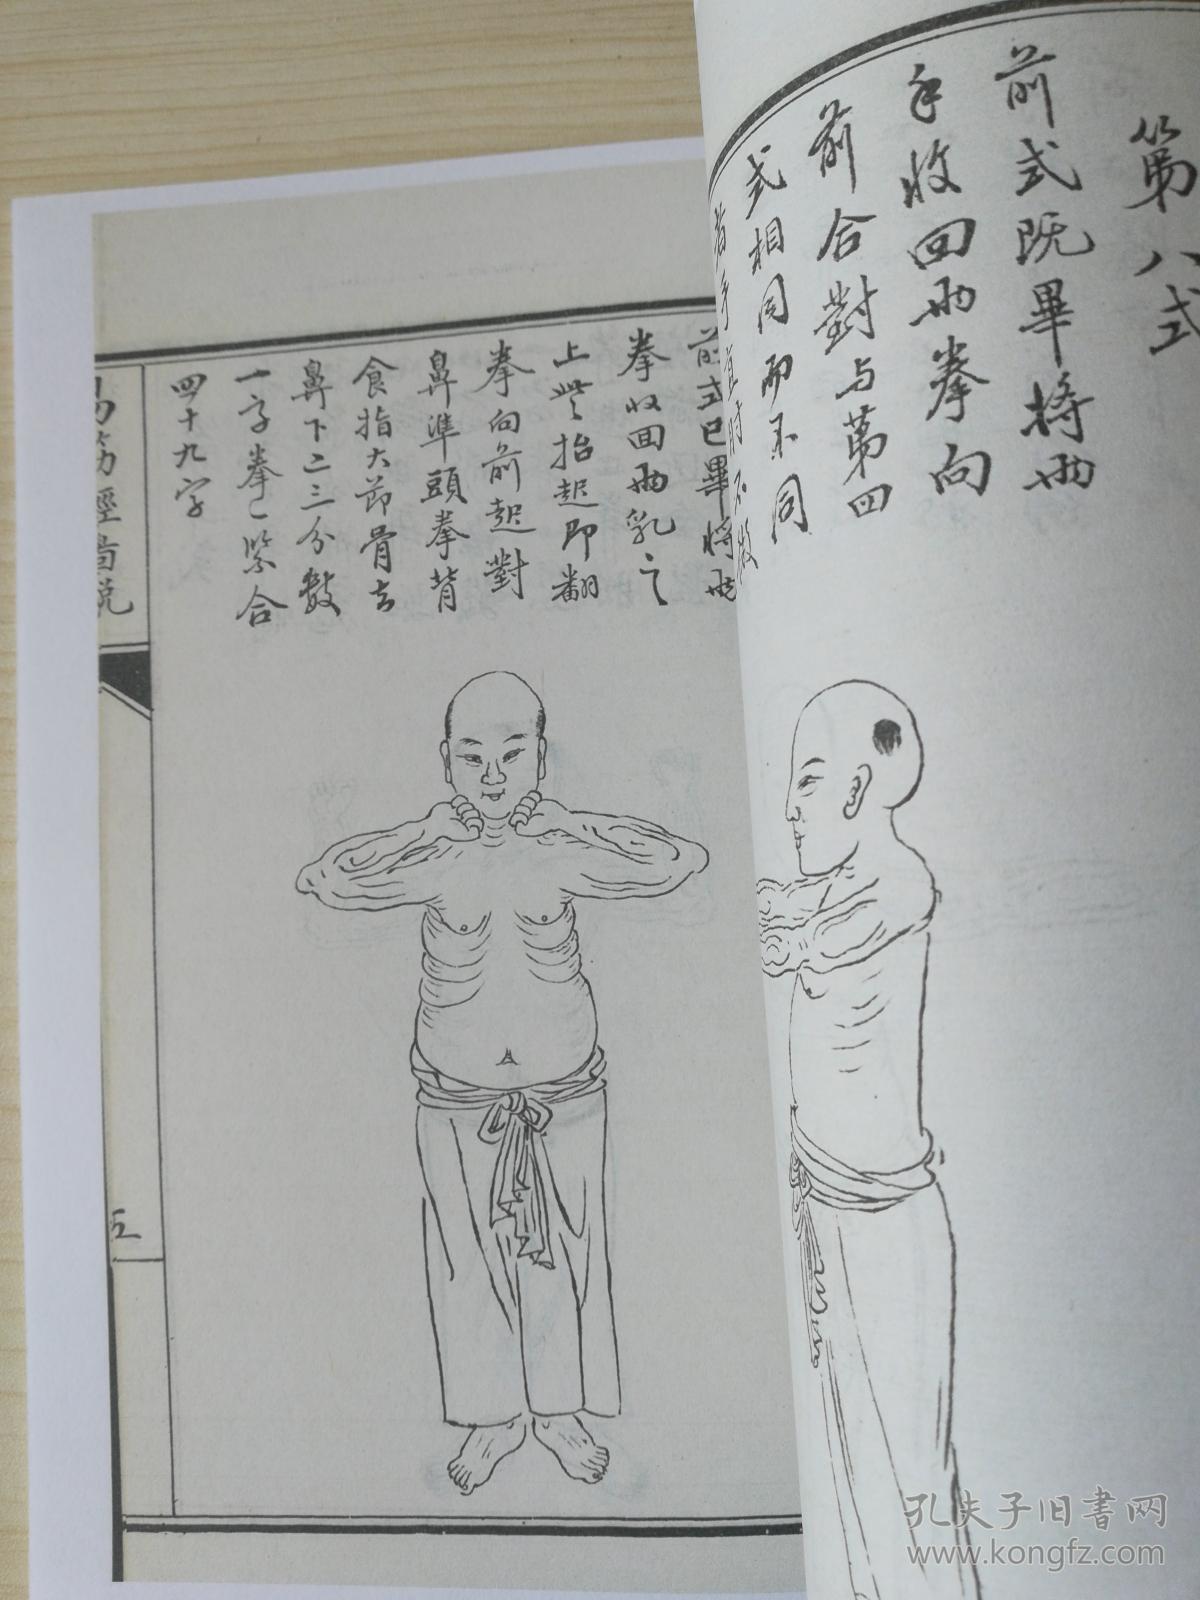 第八式
前式既畢將两
手收回两拳向
前合對与苐四
式相同而不同
前式已畢將两
拳收回两乳之
上些抬起即翻
拳向前起對
鼻準頭拳背
食指大節骨去
鼻下二三分數
一字拳一緊合
四十九字
易筋經啚説
五
孔夫子旧書网
www.kongfz.com